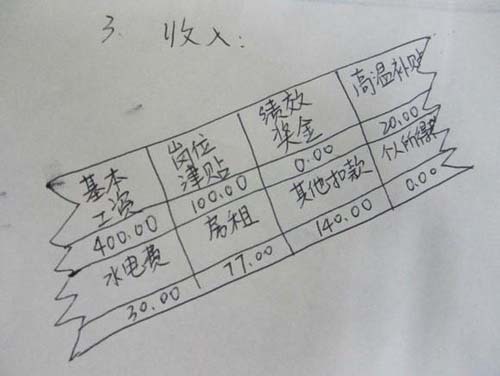 3. 收入:
基本工资 岗位津贴 绩效奖金 高温补贴
400.00 100.00 0.00 20.00
水电费 房租 其他扣款 个人所得
30.00 77.00 140.00 0.00